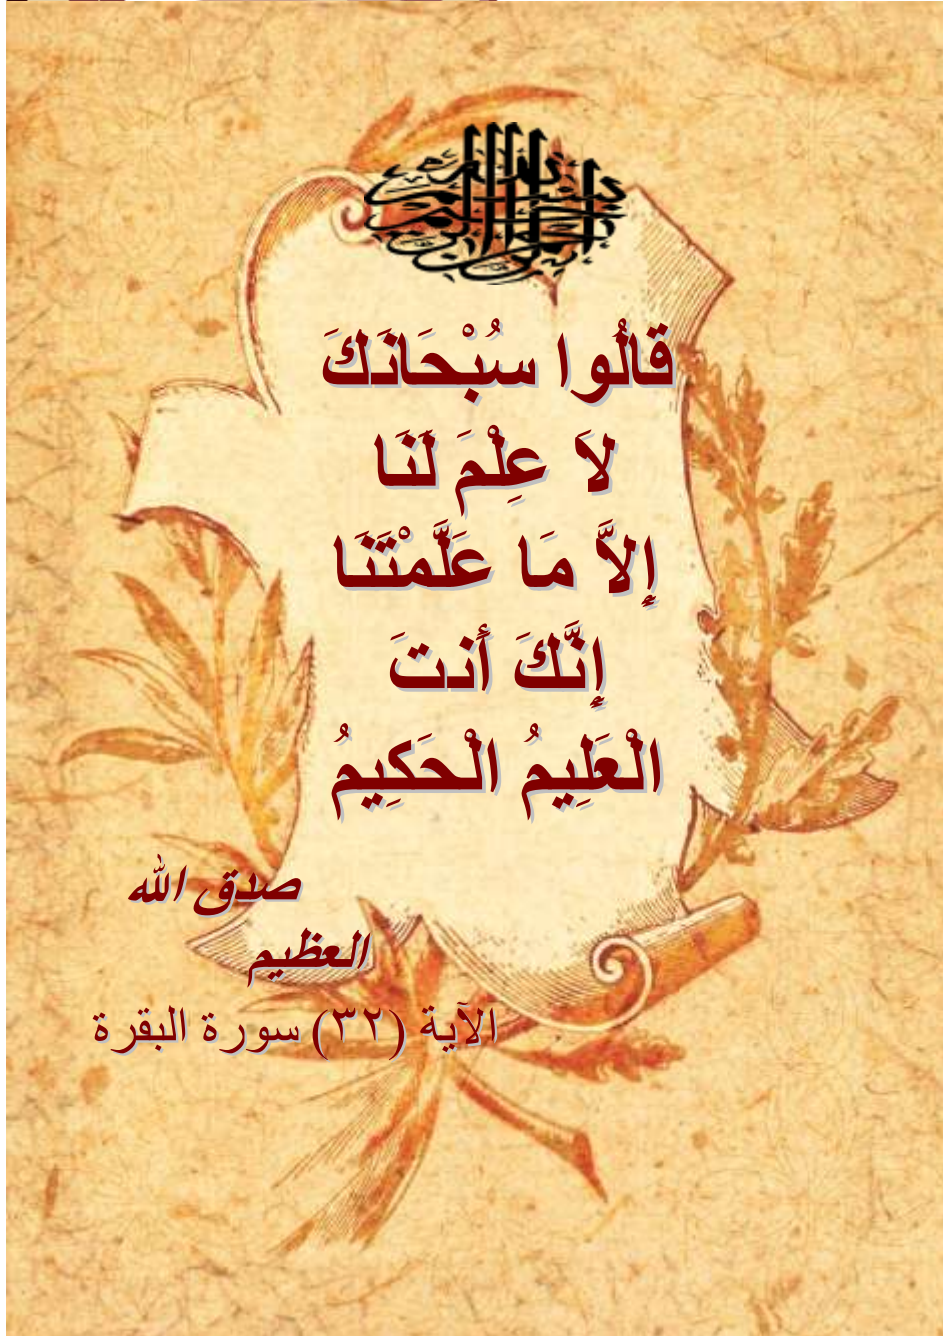 بسم الله الرحمن الرحيم
قَالُوا سُبْحَانَكَ
لاَ عِلْمَ لَنَا
إِلاَّ مَا عَلَّمْتَنَا
إِنَّكَ أَنتَ
الْعَلِيمُ الْحَكِيمُ
صدق الله
العظيم
الآية (٣٢) سورة البقرة